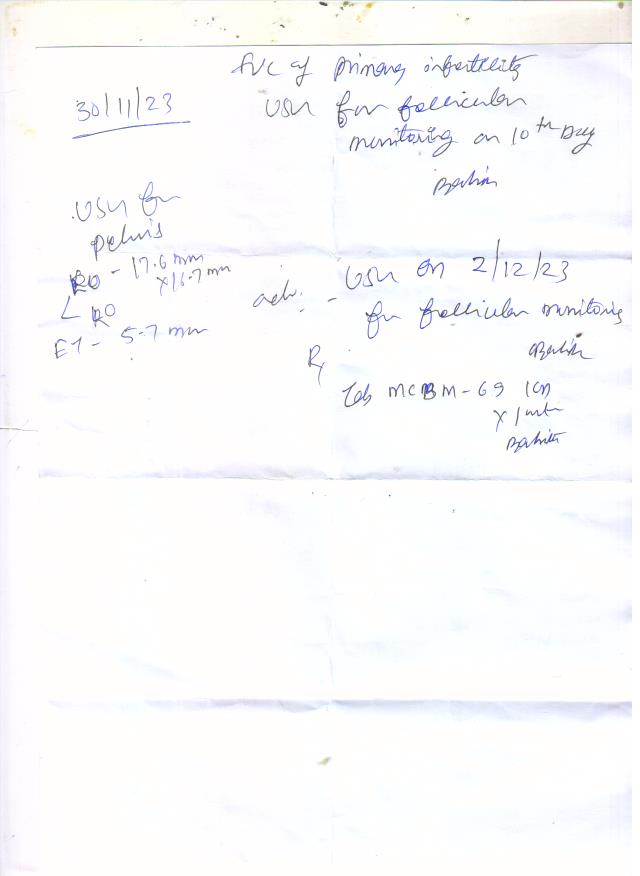 F/U/C of primary infertility
30/11/23
USG for follicular
monitoring on 10th Day
USG for
pelvis
RO - 17.6 mm
x 16.7 mm
L RO
ET - 5.7 mm
adv. - USG on 2/12/23
for follicular monitoring
Rx
Tab MCBM-69 1 OD
x 1 mth